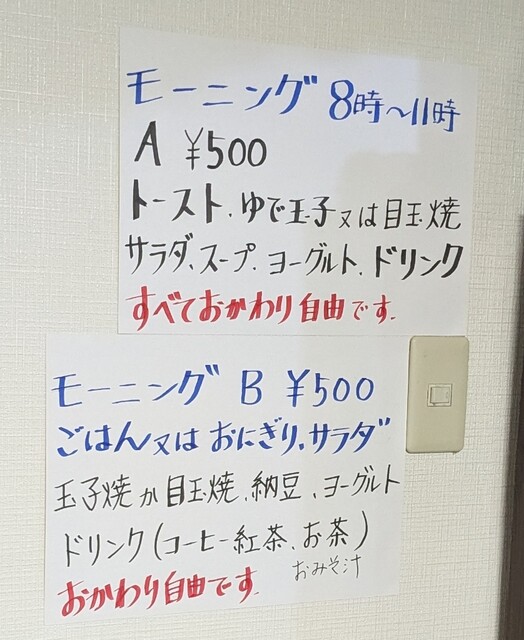 モーニング 8時〜11時
A ¥500
トースト、ゆで玉子又は目玉焼
サラダ、スープ、ヨーグルト、ドリンク
すべておかわり自由です。
モーニング B ¥500
ごはん又はおにぎり、サラダ
玉子焼か目玉焼、納豆、ヨーグルト
ドリンク(コーヒー紅茶、お茶)
おみそ汁
おかわり自由です。